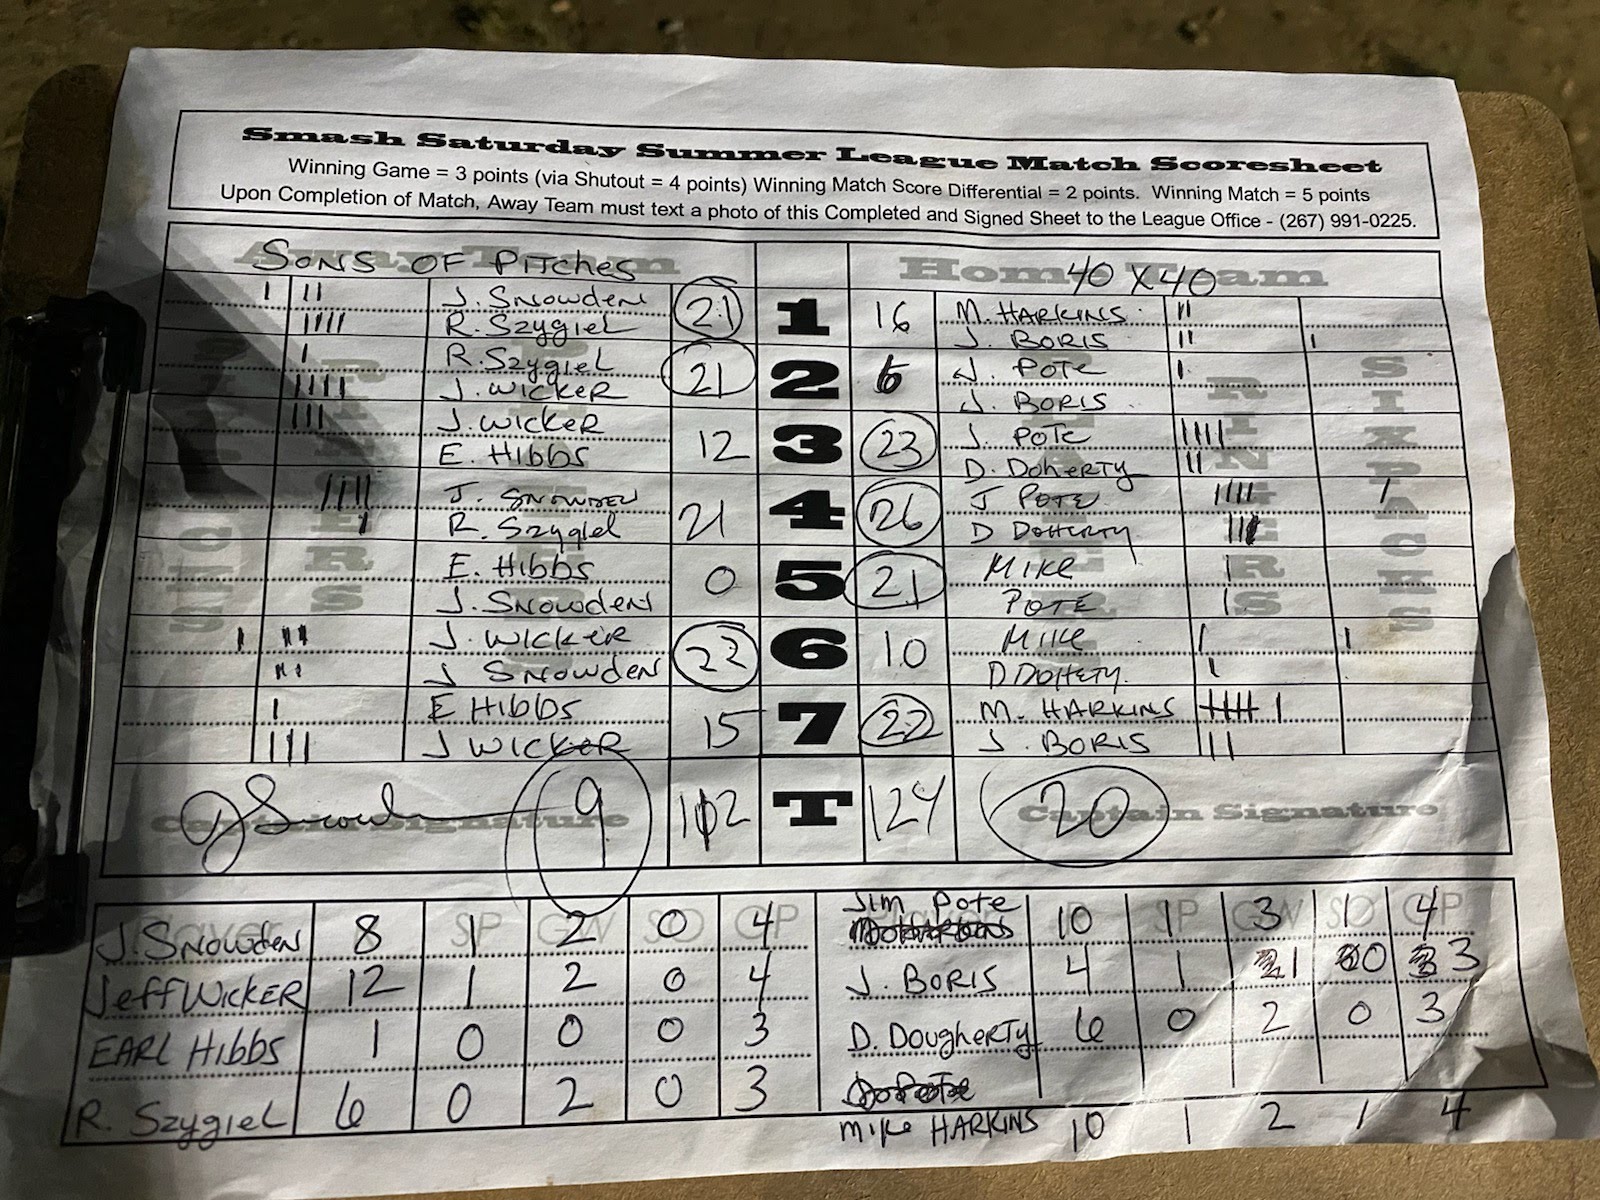 Smash Saturday Summer League Match Scoresheet
Winning Game = 3 points (via Shutout = 4 points) Winning Match Score Differential = 2 points. Winning Match = 5 points
Upon Completion of Match, Away Team must text a photo of this Completed and Signed Sheet to the League Office - (267) 991-0225.
Away Team SONS OF PITCHES Home Team 40 X 40
J. SNOWDEN 21 1 16 M. HARKINS
R. SZYGIEL J. BORIS
R. SZYGIEL 21 2 6 J. POTE
J. WICKER J. BORIS
J. WICKER 12 3 23 J. POTE
E. HIBBS D. DOHERTY
J. SNOWDEN 21 4 26 J POTE
R. SZYGIEL D DOHERTY
E. HIBBS 0 5 21 MIKE
J. SNOWDEN POTE
J. WICKER 22 6 10 MIKE
J SNOWDEN D DOHETY.
E HIBBS 15 7 22 M. HARKINS
J WICKER J. BORIS
RINGERS SIXPACKS
J Snowden Captain Signature 9 112 T 124 20 Captain Signature
Player SP GW SO GP SP GW SO GP
J. SNOWDEN 8 1 2 0 4 Jim Pote 10 1 3 1 4
Jeff WICKER 12 1 2 0 4 J. BORIS 4 1 1 0 3
EARL HIBBS 1 0 0 0 3 D. Dougherty 6 0 2 0 3
R. SZYGIEL 6 0 2 0 3
Mike HARKINS 10 1 2 1 4